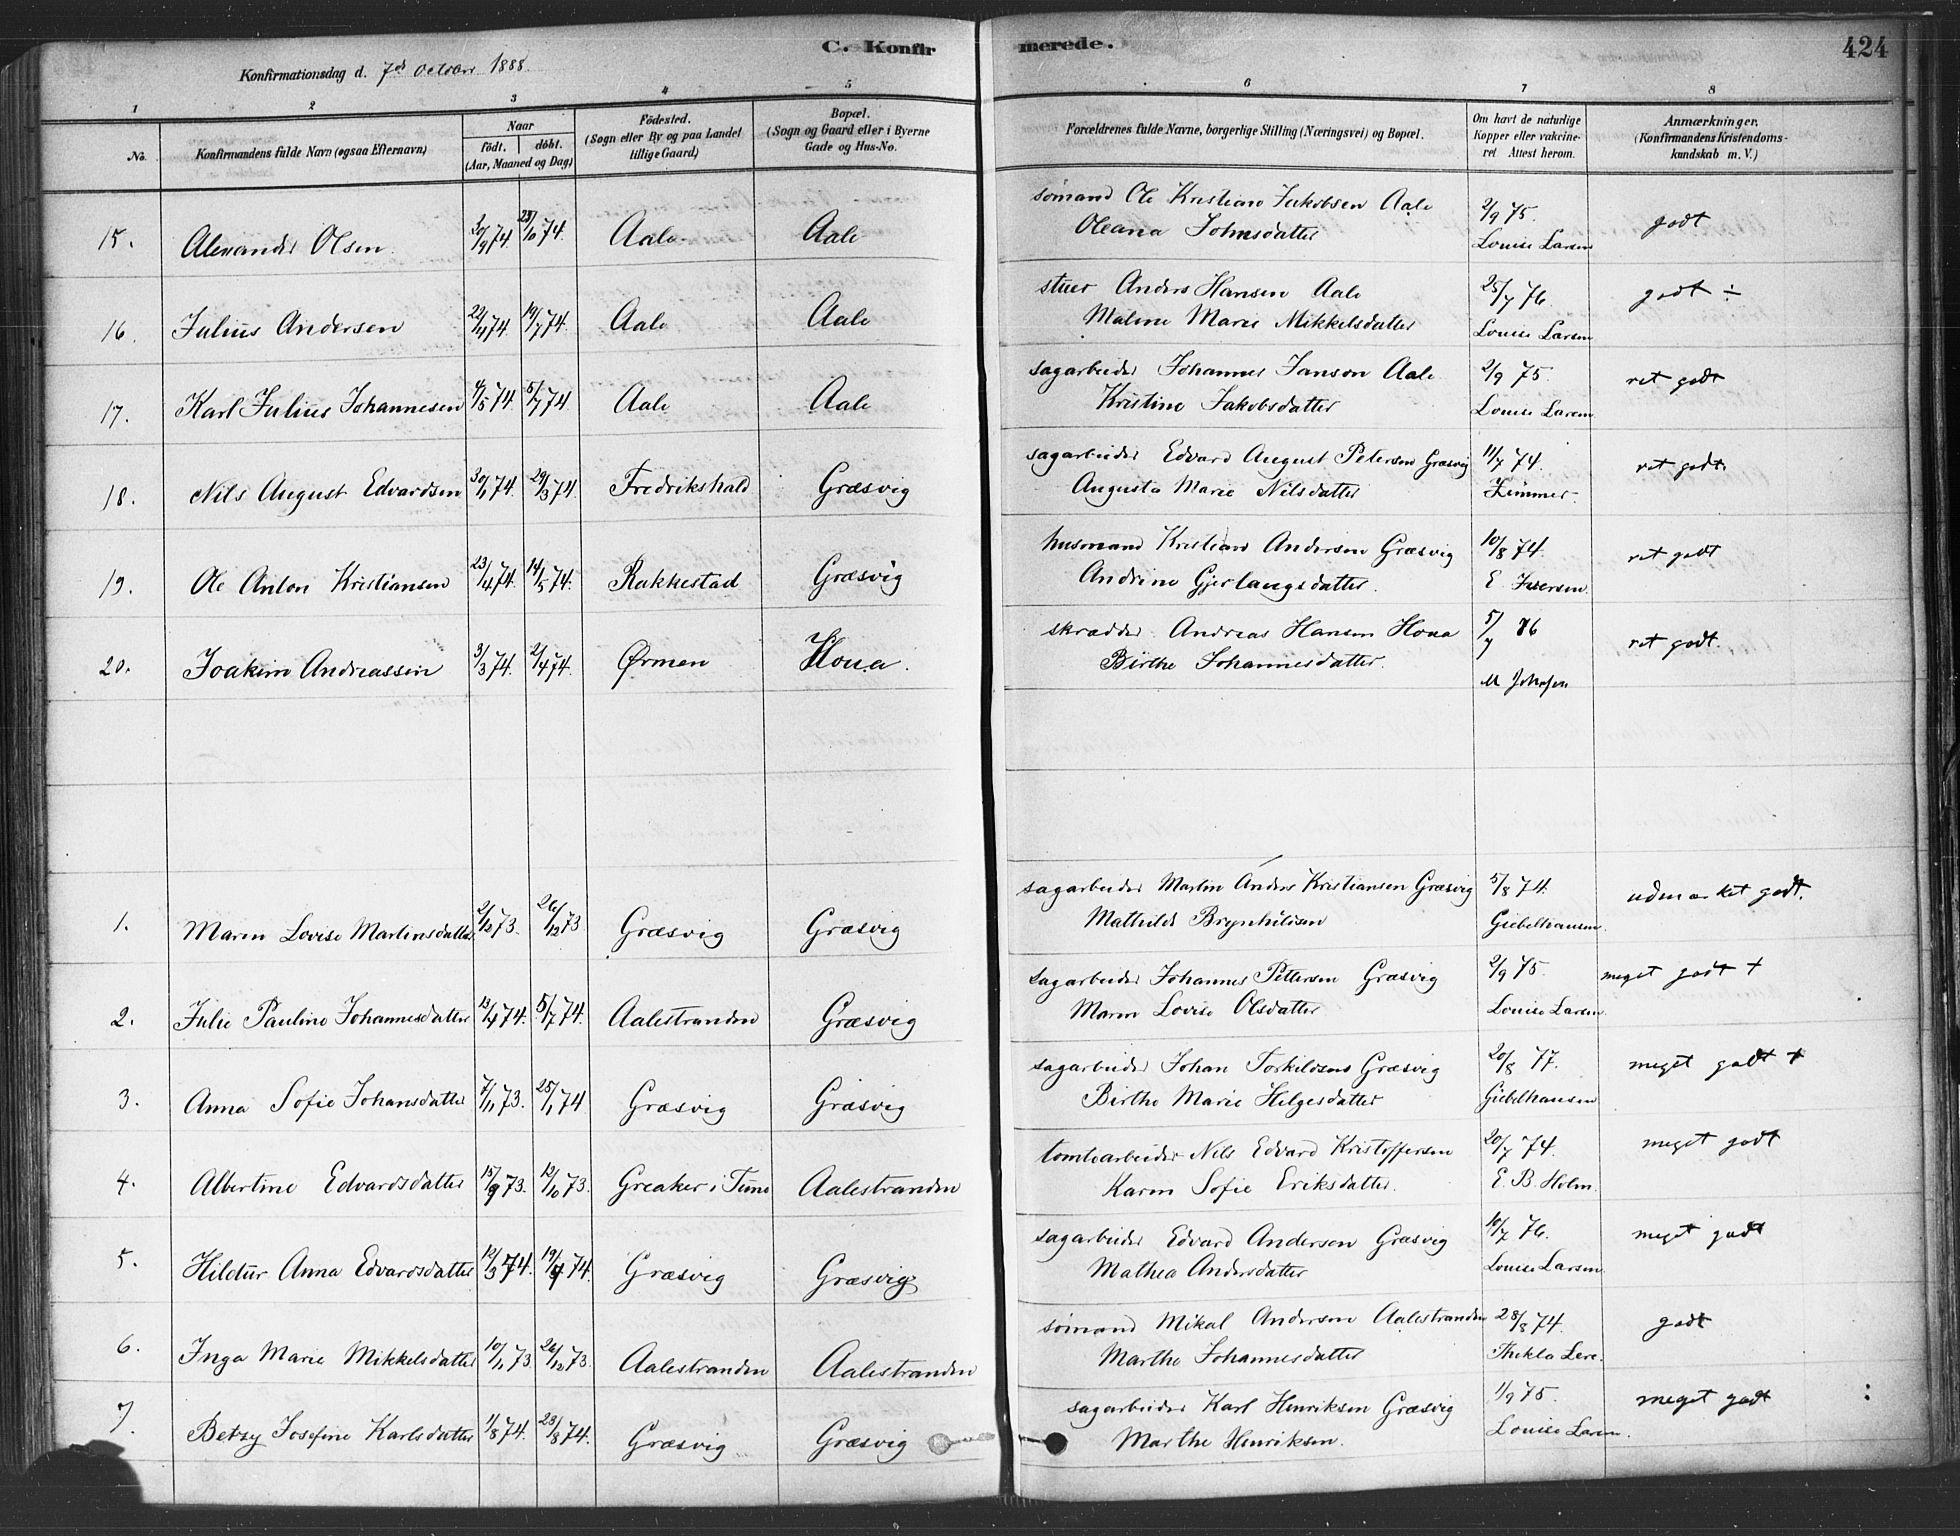 C. Konfir merede. 424
Konfirmationsdag d. 7de October 1888.
1 2 3 4 5 6 7 8
No. Konfirmandens fulde Navn (ogsaa Efternavn) Naar født. døbt. (Aar, Maaned og Dag) Fødested. (Sogn eller By og paa Landet tillige Gaard) Bopæl. (Sogn og Gaard eller i Byerne Gade og Hus-No. Forældrenes fulde Navne, borgerlige Stilling (Næringsvei) og Bopæl. Om havt de naturlige Kopper eller vakcineret Attest herom. Anmærkninger, (Konfirmandens Kristendomskundskab m. V.)
15. Alexander Olsen 20/9 74. 23/10 74. Aale Aale sømand Ole Kristian Jakobsen Aale 2/9 75. godt
Oleana Johnsdatter Louise Larsen
16. Julius Andersen 22/4 74. 19/7 74. Aale Aale stuer Anders Hansen Aale 25/7 76. godt ÷
Maline Marie Mikkelsdatter Louise Larsen
17. Karl Julius Johannesen 4/5 74. 5/7 74. Aale Aale sagarbeider Johannes Janson Aale 2/9 75. ret godt
Kristine Jakobsdatter Louise Larsen
18. Nils August Edvardsen 30/1 74. 29/3 74. Fredrikshald Græsvig sagarbeider Edvard August Petersen Græsvig 11/7 74. ret godt.
Augusta Marie Nilsdatter Zimmer.
19. Ole Anton Kristiansen 23/4 74. 14/5 74. Rakkestad Græsvig husmand Kristian Andersen Græsvig 10/8 74. ret godt
Andrine Gjerlaugsdatter. E. Iversen.
20. Joakim Andreassen 3/3 74. 2/4 74. Ørmen Houa. skrædder Andreas Hansen Houa 5/7 86 ret godt.
Birthe Johannesdatter. M Johnsen
1. Maren Lovise Martinsdatter 2/12 73. 26/12 73. Græsvig Græsvig sagarbeider Martin Anders Kristiansen Græsvig 5/8 74. udmærket godt.
Mathilde Brynhildsen Giebelhausen.
2. Julie Pauline Johannesdatter 13/4 74. 5/7 74. Aalestranden Græsvig sagarbeider Johannes Pettersen Græsvig 2/9 75. meget godt +
Maren Lovise Olsdatter Louise Larsen.
3. Anna Sofie Johansdatter 7/11 73. 25/1 74 Græsvig Græsvig sagarbeider Johan Torkildsens Græsvig 20/8 77. meget godt +
Birthe Marie Helgesdatter Giebelhausen
4. Albertine Edvardsdatter 15/9 73. 12/10 73. Greaker i Tune Aalestranden tomtearbeider Nils Edvard Kristoffersen 20/7 74. meget godt
Karen Sofie Eriksdatter. E. B. Holm.
5. Hildur Anna Edvardsdatter 12/3 74. 19/4 74. Græsvig Græsvig sagarbeider Edvard Anderson Græsvig 10/7 76. meget godt
Mathea Andersdatter Louise Larsen.
6. Inga Marie Mikkelsdatter 10/11 73. 26/12 73. Aalestranden Aalestranden sømand Mikal Andersen Aalestranden 28/8 74. godt
Marthe Johannesdatter Thekla Lere.
7. Betzy Josefine Karlsdatter 1/8 74. 23/8 74. Græsvig Græsvig sagarbeider Karl Henriksen Græsvig 1/9 75. meget godt :
Marthe Henriksen. Louise Larsen.